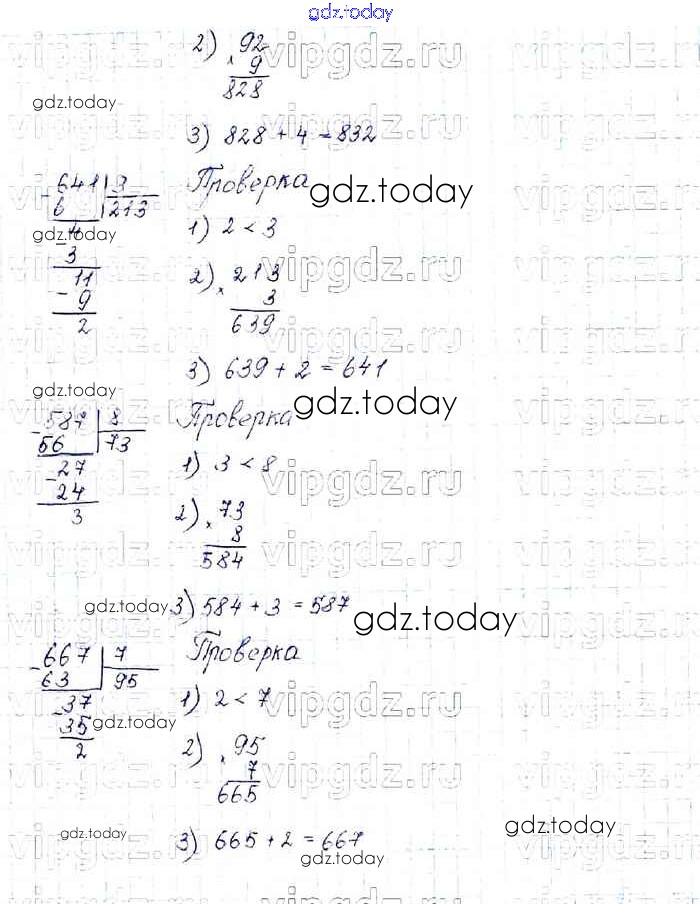 gdz.today
2) 92
× 9
828
gdz.today
3) 828 + 4 = 832
641 | 3 Проверка
- 6 213
gdz.today
4 1) 2 < 3
gdz.today
- 3
11 2) × 213
- 9 3
2 639
3) 639 + 2 = 641
gdz.today
- 587 | 8 Проверка
56 73
gdz.today
- 27 1) 3 < 8
24
3 2) × 73
8
584
gdz.today 3) 584 + 3 = 587
gdz.today
- 667 | 7 Проверка
63 95
- 37 1) 2 < 7
35 gdz.today
2 2) × 95
7
665
gdz.today 3) 665 + 2 = 667
gdz.today
gdz.today
vipgdz.ru
vipgdz.ru
vipgdz.ru
vipgdz.ru
vipgdz.ru
vipgdz.ru
vipgdz.ru
vipgdz.ru
vipgdz.ru